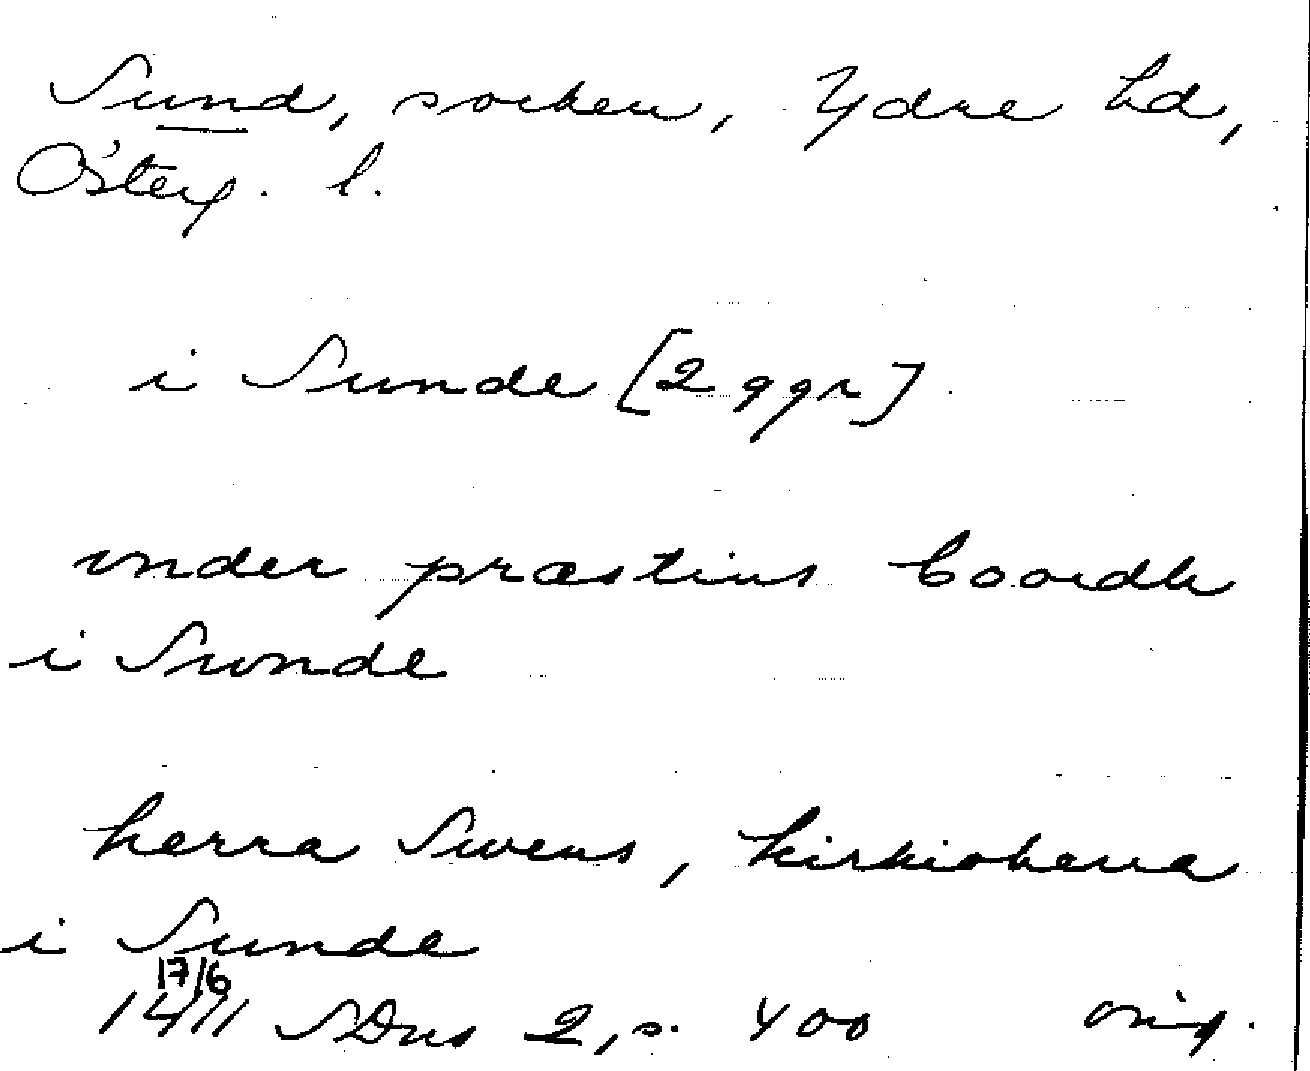 Sund, socken, Ydre hd,
Österg. l.
i Sunde [2 ggr]
vnder præstins boordh
i Swnde
herra Swens, kirkiohera
i Sunde
17/6
1411 SDns 2, s. 400 orig.